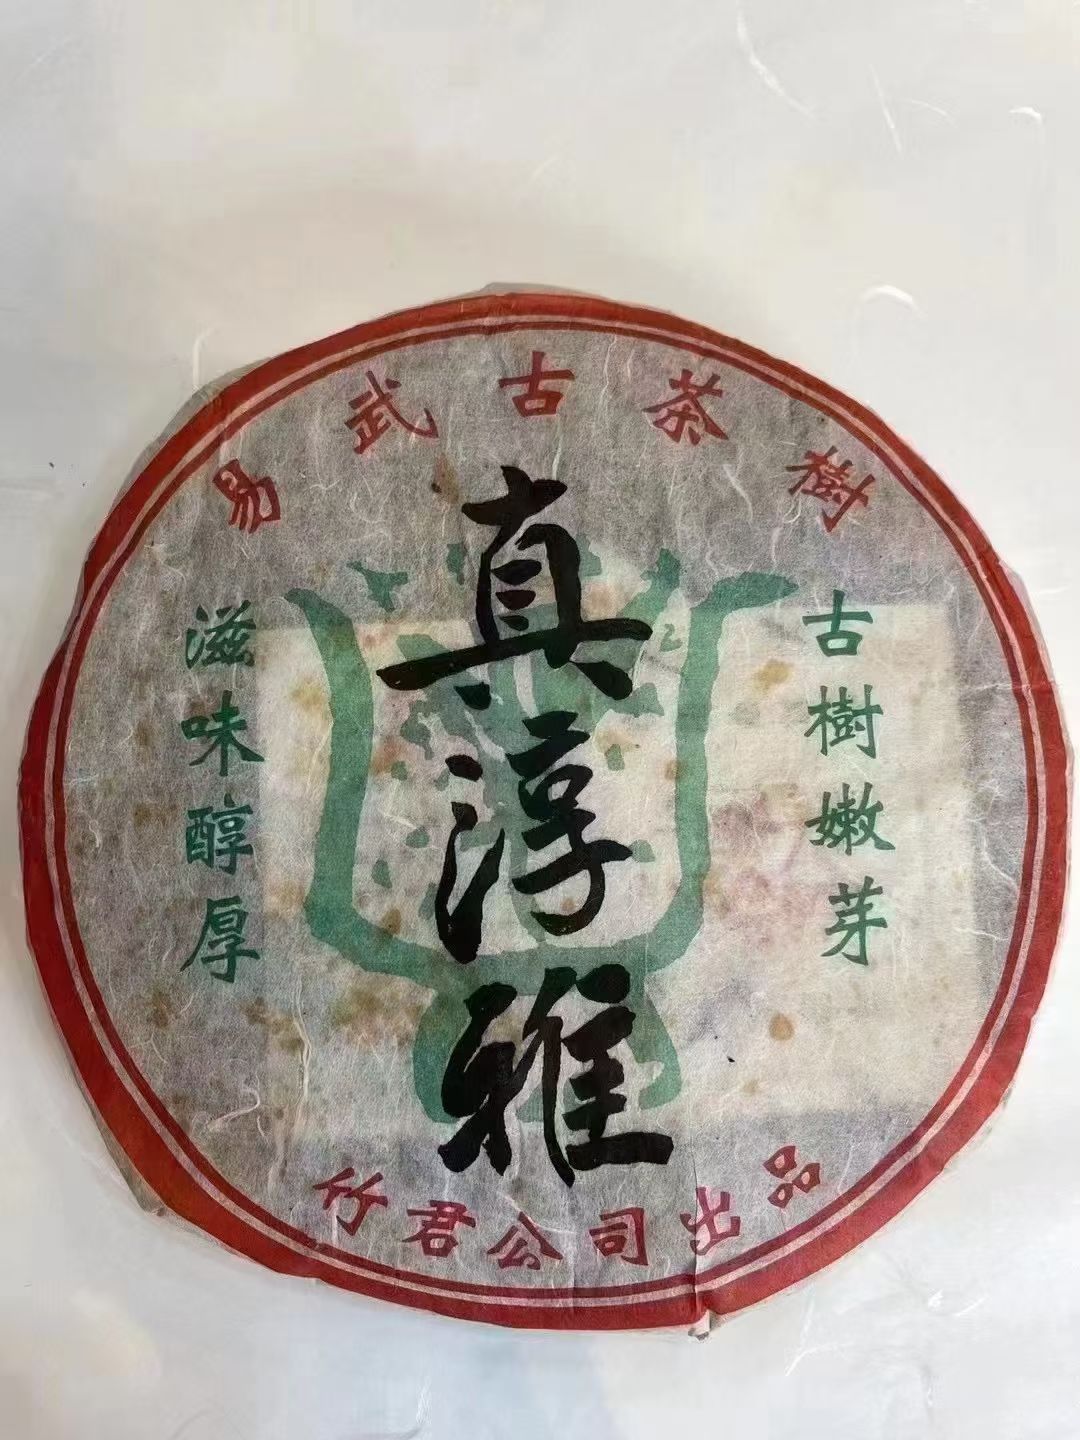 易武古茶樹
真淳雅
古樹嫩芽
滋味醇厚
竹君公司出品